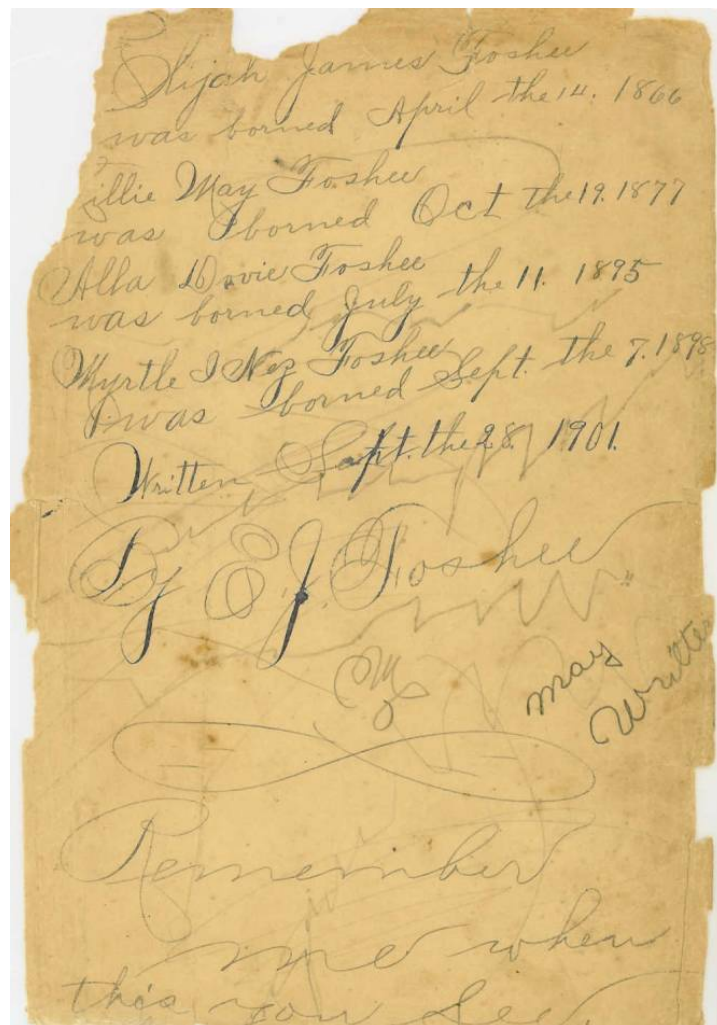 Elijah James Foshee
was borned April the 14. 1866
illie May Foshee
was borned Oct the 19. 1877
Alla Dovie Foshee
was borned July the 11. 1895
Myrtle I Nez Foshee
was borned Sept. the 7. 1898
Written Sept. the 28. 1901.
By E. J. Foshee
May
Writte
Remember
me when
this you See